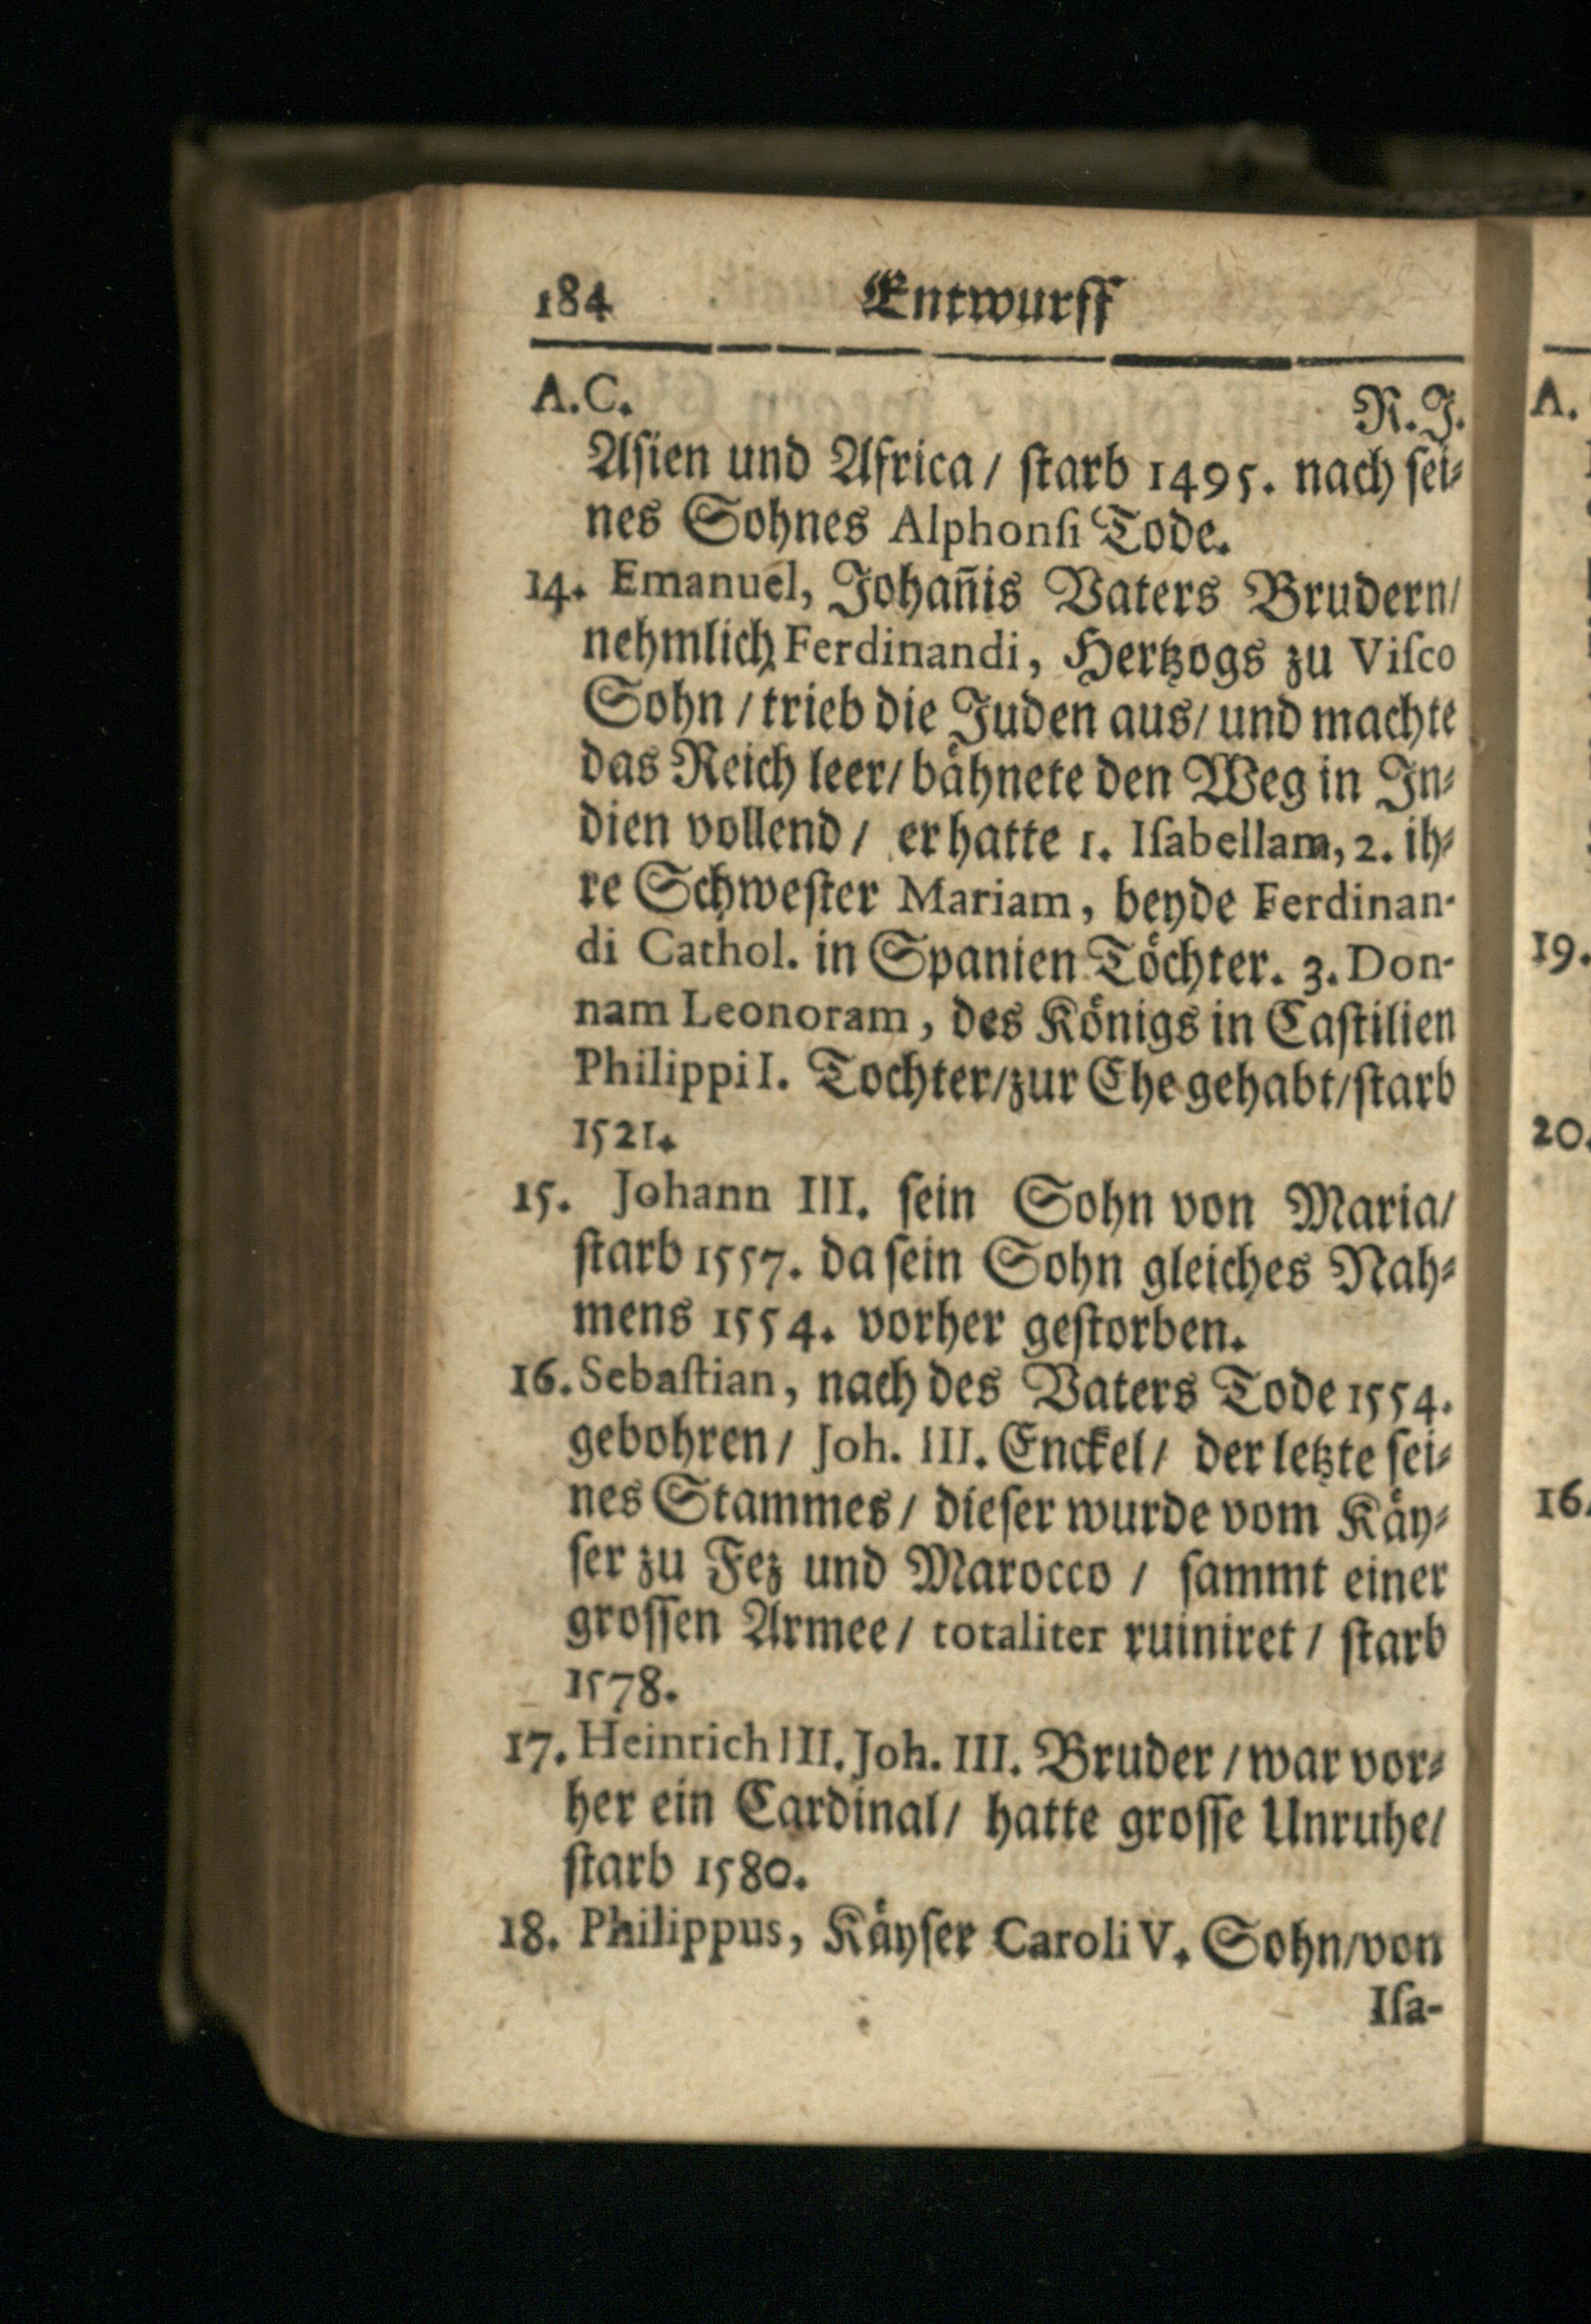 184 Entwurff
A.C. R.J.
Aſien und Africa / ſtarb 1495. nach ſei⸗
nes Sohnes Alphonſi Tode.
14. Emanuel, Johan̄is Vaters Brudern/
nehmlich Ferdinandi, Hertzogs zu Viſco
Sohn / trieb die Juden aus / und machte
das Reich leer / bähnete den Weg in In⸗
dien vollend / er hatte 1. Iſabellam, 2. ih⸗
re Schweſter Mariam, beyde Ferdinan-
di Cathol. in Spanien Töchter. 3. Don-
nam Leonoram, des Königs in Caſtilien
Philippi I. Tochter / zur Ehe gehabt / ſtarb
1521.
15. Johann III. ſein Sohn von Maria/
ſtarb 1557. da ſein Sohn gleiches Nah⸗
mens 1554. vorher geſtorben.
16. Sebaſtian, nach des Vaters Tode 1554.
gebohren / Joh. III. Enckel / der letzte ſei⸗
nes Stammes / dieſer wurde vom Käy⸗
ſer zu Fez und Marocco / ſammt einer
groſſen Armee / totaliter ruiniret / ſtarb
1578.
17. Heinrich III. Joh. III. Bruder / war vor⸗
her ein Cardinal / hatte groſſe Unruhe/
ſtarb 1580.
18. Philippus, Käyſer Caroli V. Sohn / von
Iſa-
A.
19.
20.
16.